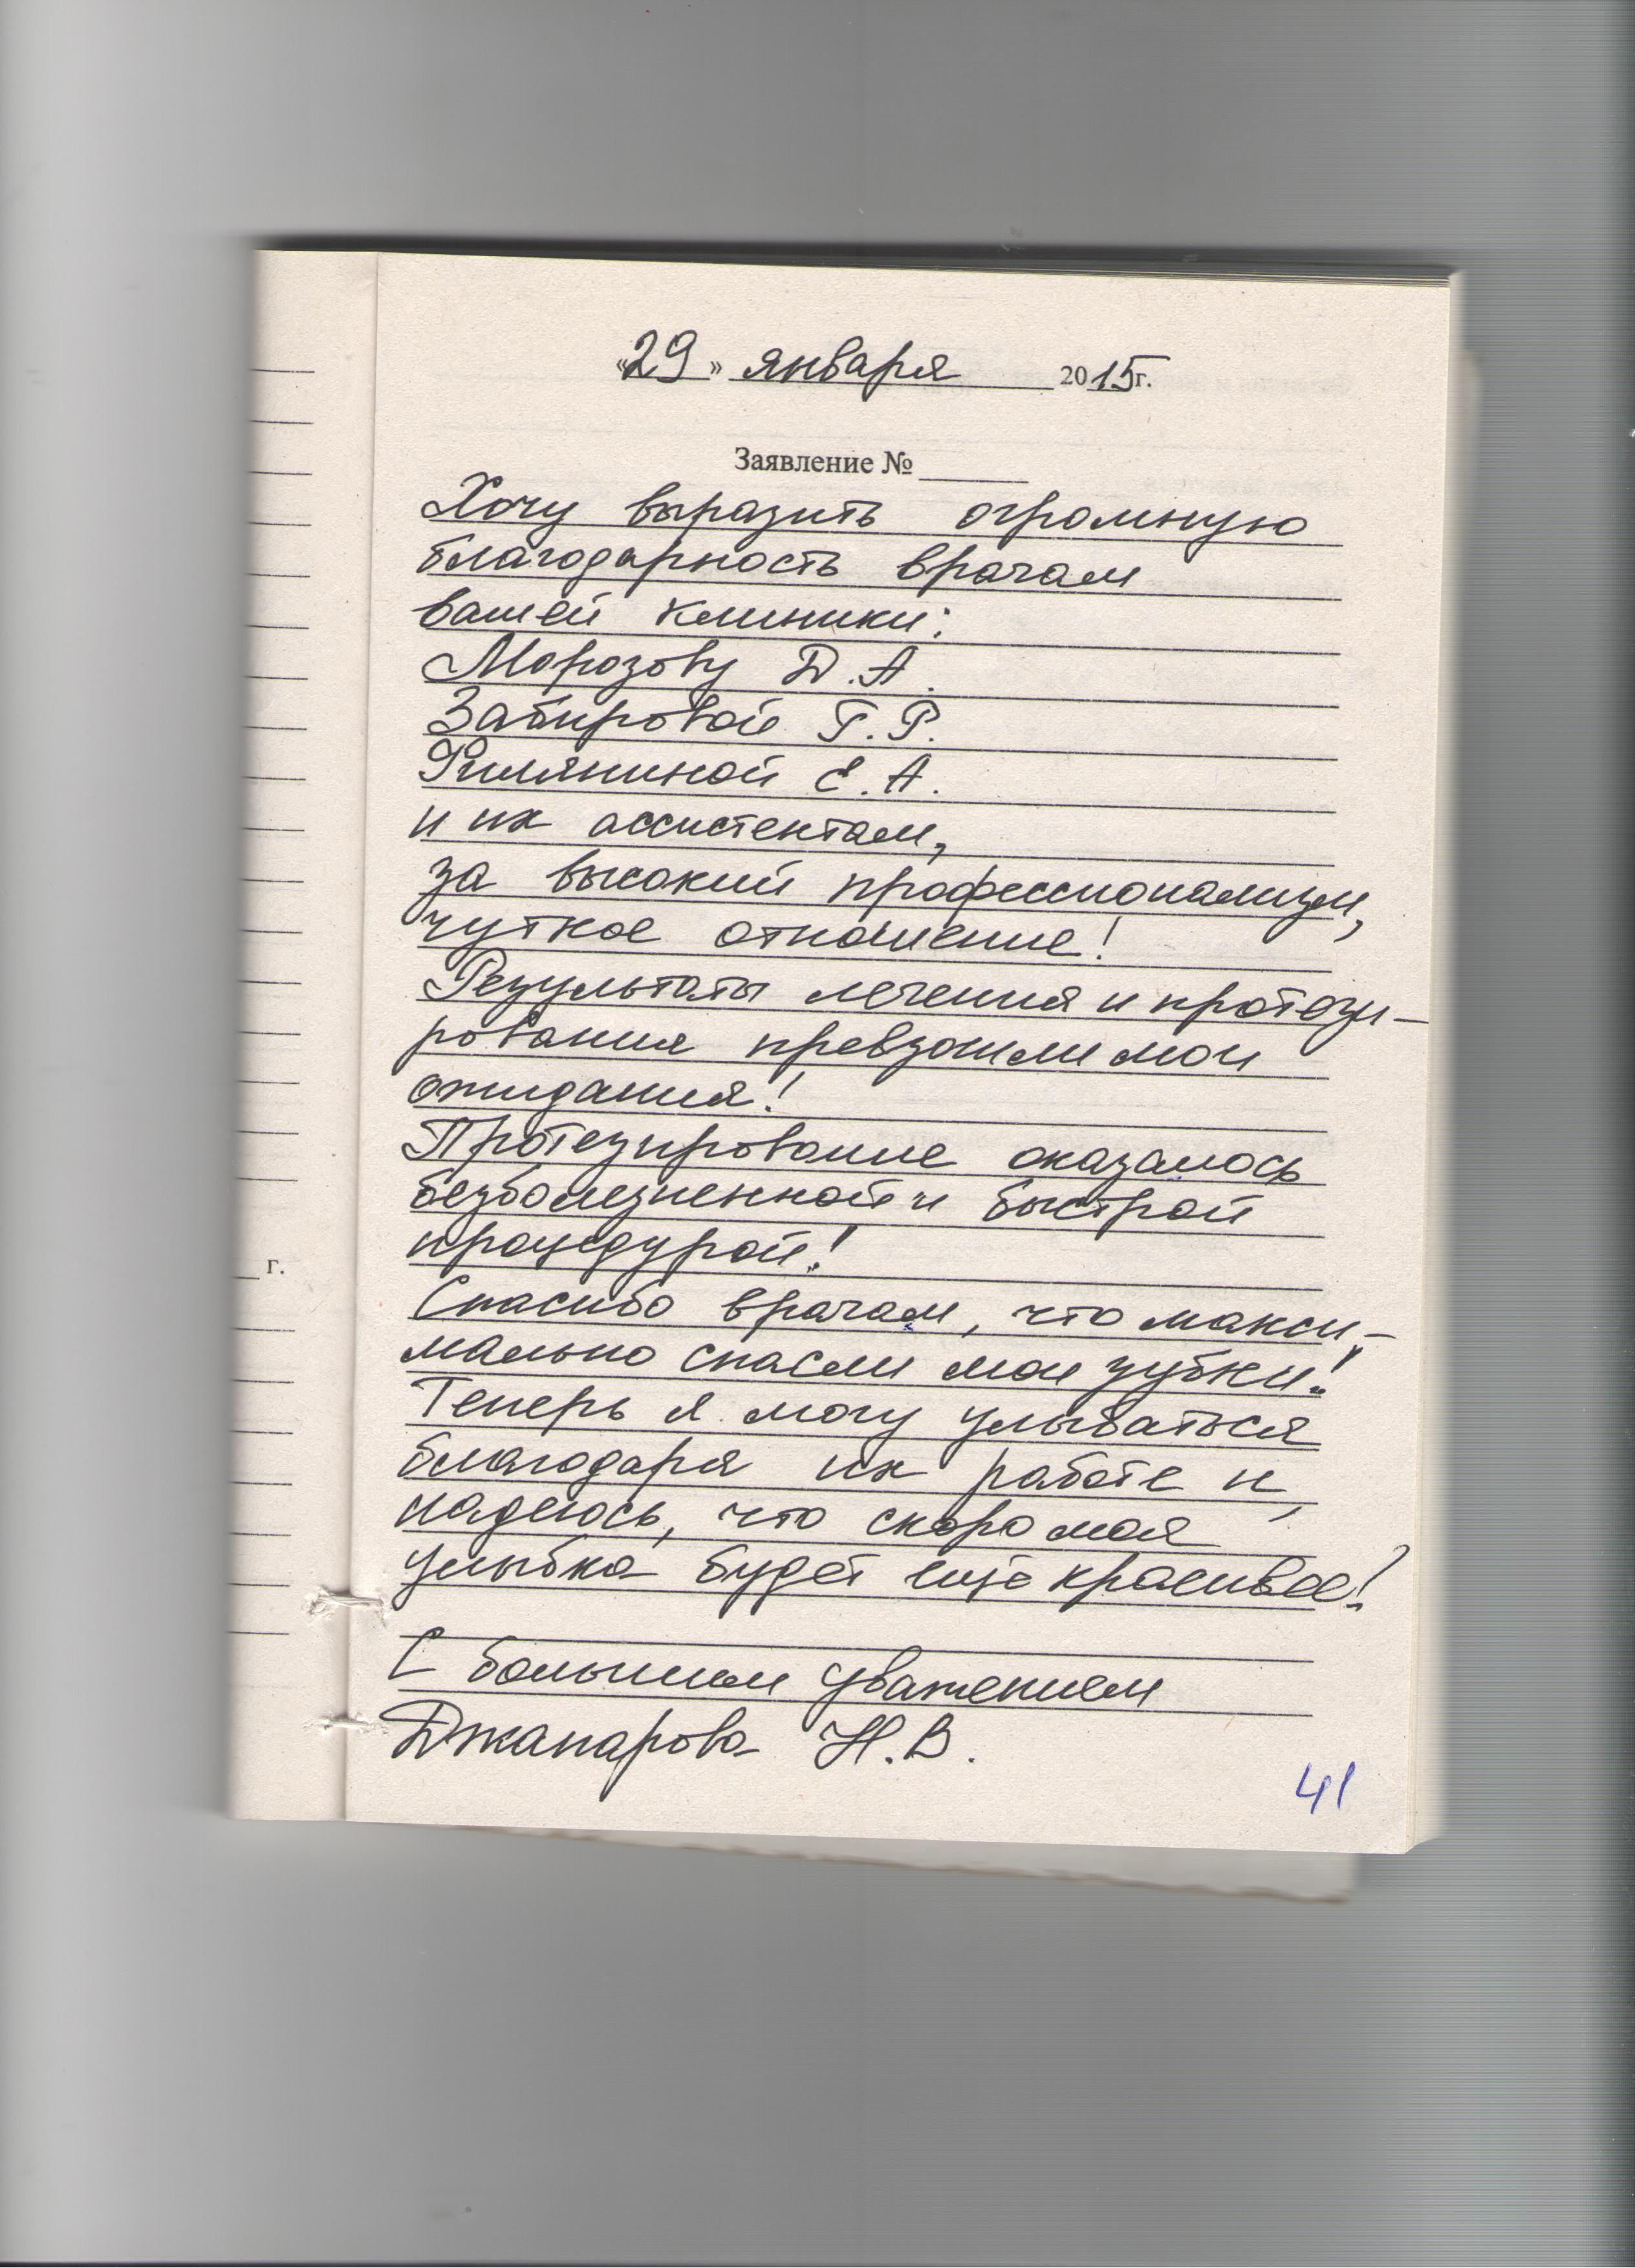 «29» января 2015г.
Заявление № ____
Хочу выразить огромную
благодарность врачам
вашей клиники:
Морозову Д.А.
Забировой Г.Р.
Римляниной Е.А.
и их ассистентам,
за высокий профессионализм,
чуткое отношение!
Результаты лечения и протези-
рования превзошли мои
ожидания!
Протезирование оказалось
безболезненной и быстрой
процедурой!
Спасибо врачам, что макси-
мально спасли мои зубки!
Теперь я могу улыбаться
благодаря их работе и,
надеюсь, что скоро моя
улыбка будет ещё красивее!
г.
С большим уважением
Джапарова Н.В.
41